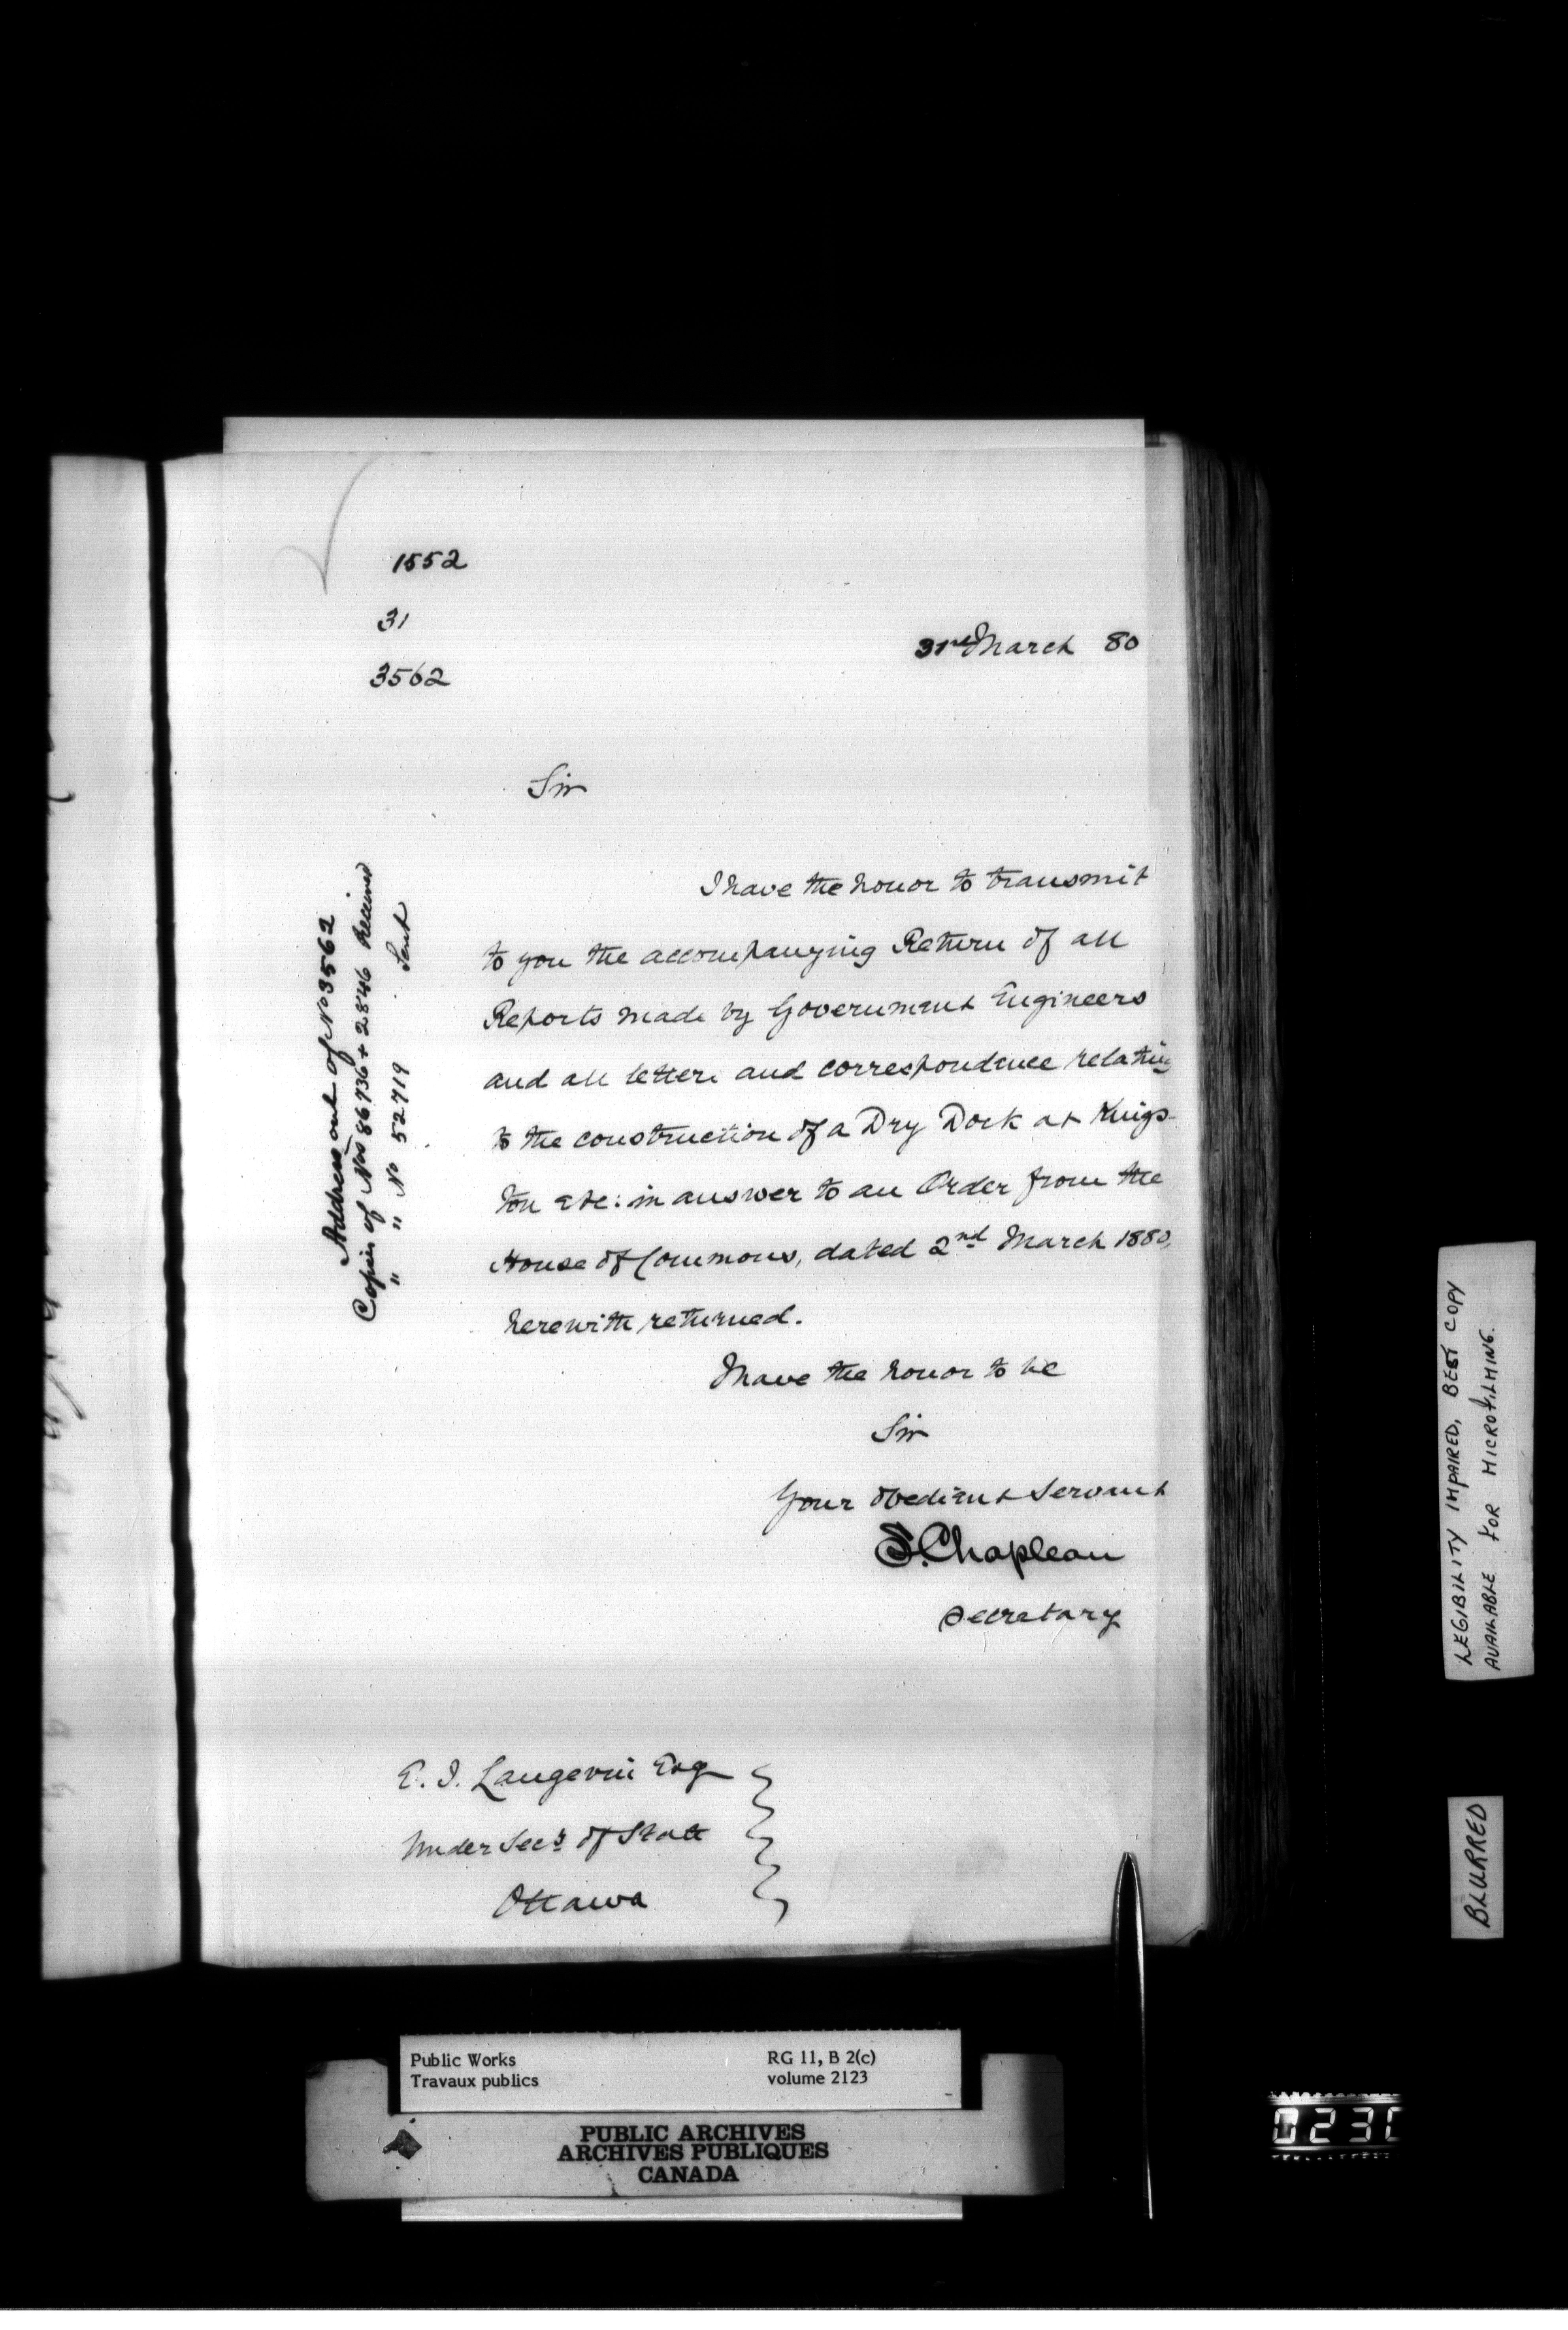 1552
31
3562
31st March 80
Sir
I have the honor to transmit
to you the accompanying Return of all
Reports made by Government Engineers
and all letters and correspondence relating
to the construction of a Dry Dock at Kings-
ton etc: in answer to an Order from the
House of Commons, dated 2nd March 1880,
herewith returned.
I have the honor to be
Sir
Your obedient Servant
S. Chapleau
Secretary
Address out of No 3562
Copies of Nos 86736 + 2846 Received
" " No 52719 Sent
E. J. Langevin Esq
Under Secy of State
Ottawa
LEGIBILITY IMPAIRED, BEST COPY
AVAILABLE FOR MICROFILMING.
BLURRED
Public Works
Travaux publics
RG 11, B 2(c)
volume 2123
PUBLIC ARCHIVES
ARCHIVES PUBLIQUES
CANADA